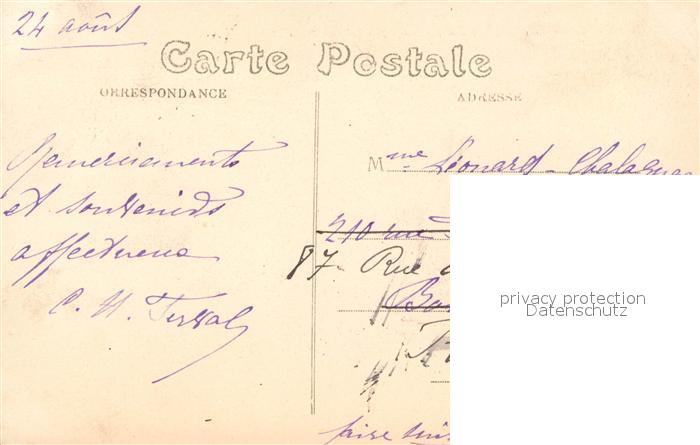 24 août
Carte Postale
ORRESPONDANCE
ADRESSE
Remerciements
et souvenirs
affectueux
C. H.
Mme Léonard-
210 rue
87 Rue
faire suiv
privacy protection
Datenschutz